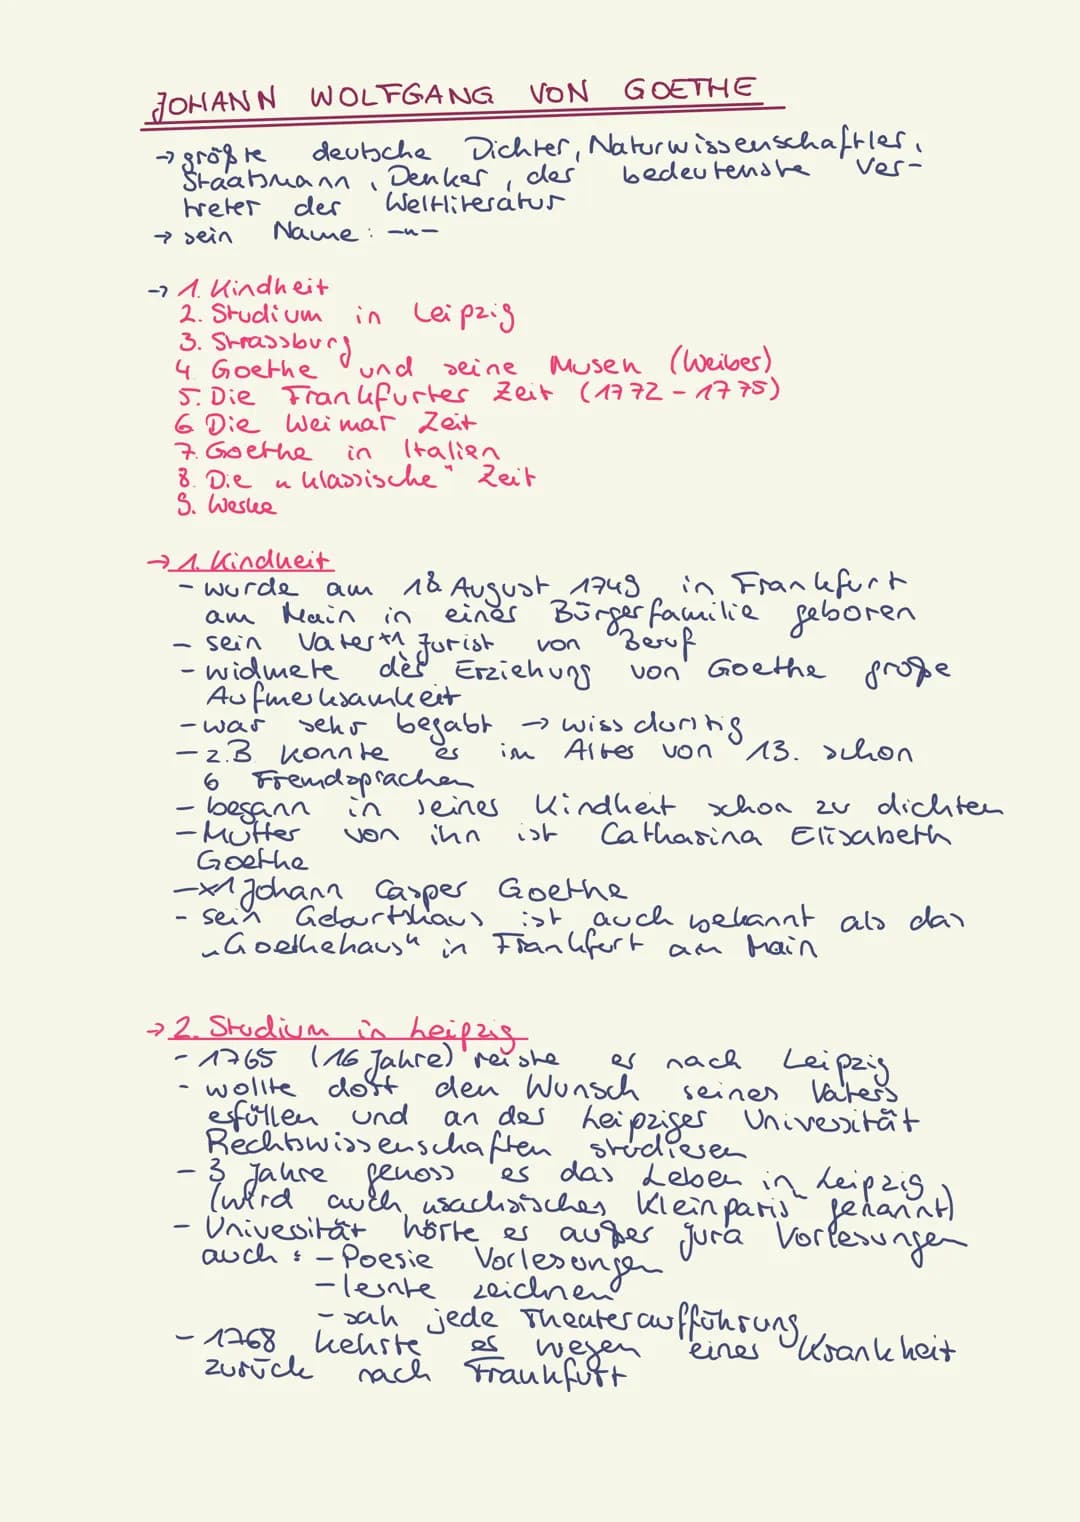 JOHANN WOLFGANG VON GOETHE
→ größte deutsche Dichter, Naturwissenschaftler,
Staatsmann, Denker, der bedeutenste Ver-
treter der Weltliteratur
→ sein Name: -"-
→ 1. Kindheit
2. Studium in Leipzig
3. Strassburg
4 Goethe und seine Musen (Weiber)
5. Die Frankfurter Zeit (1772 - 1775)
6 Die Weimar Zeit
7. Goethe in Italien
8. Die "klassische" Zeit
9. Werke
→ 1. Kindheit
- wurde am 18 August 1749 in Frankfurt
am Main in einer Bürgerfamilie geboren
- sein Vater*1 Jurist von Beruf
- widmete der Erziehung von Goethe große
Aufmerksamkeit
- war sehr begabt → wissdurstig
- z.B konnte er im Alter von 13. schon
6 Fremdsprachen
- begann in seiner Kindheit schon zu dichten
- Mutter von ihn ist Catharina Elisabeth
Goethe
-*1 Johann Casper Goethe
- sein Geburtshaus ist auch bekannt als das
„Goethehaus" in Frankfurt am Main
→ 2. Studium in Leipzig
- 1765 (16 Jahre) reiste er nach Leipzig
- wollte dort den Wunsch seines Vaters
erfüllen und an der Leipziger Universität
Rechtswissenschaften studieren
- 3 Jahre genoss er das Leben in Leipzig
(wird auch "sächsisches Kleinparis" genannt)
- Univesität hörte er außer Jura Vorlesungen
auch: - Poesie Vorlesungen
- lernte zeichnen
- sah jede Theateraufführung
- 1768 kehrte er wegen einer Krankheit
zurück nach Frankfurt